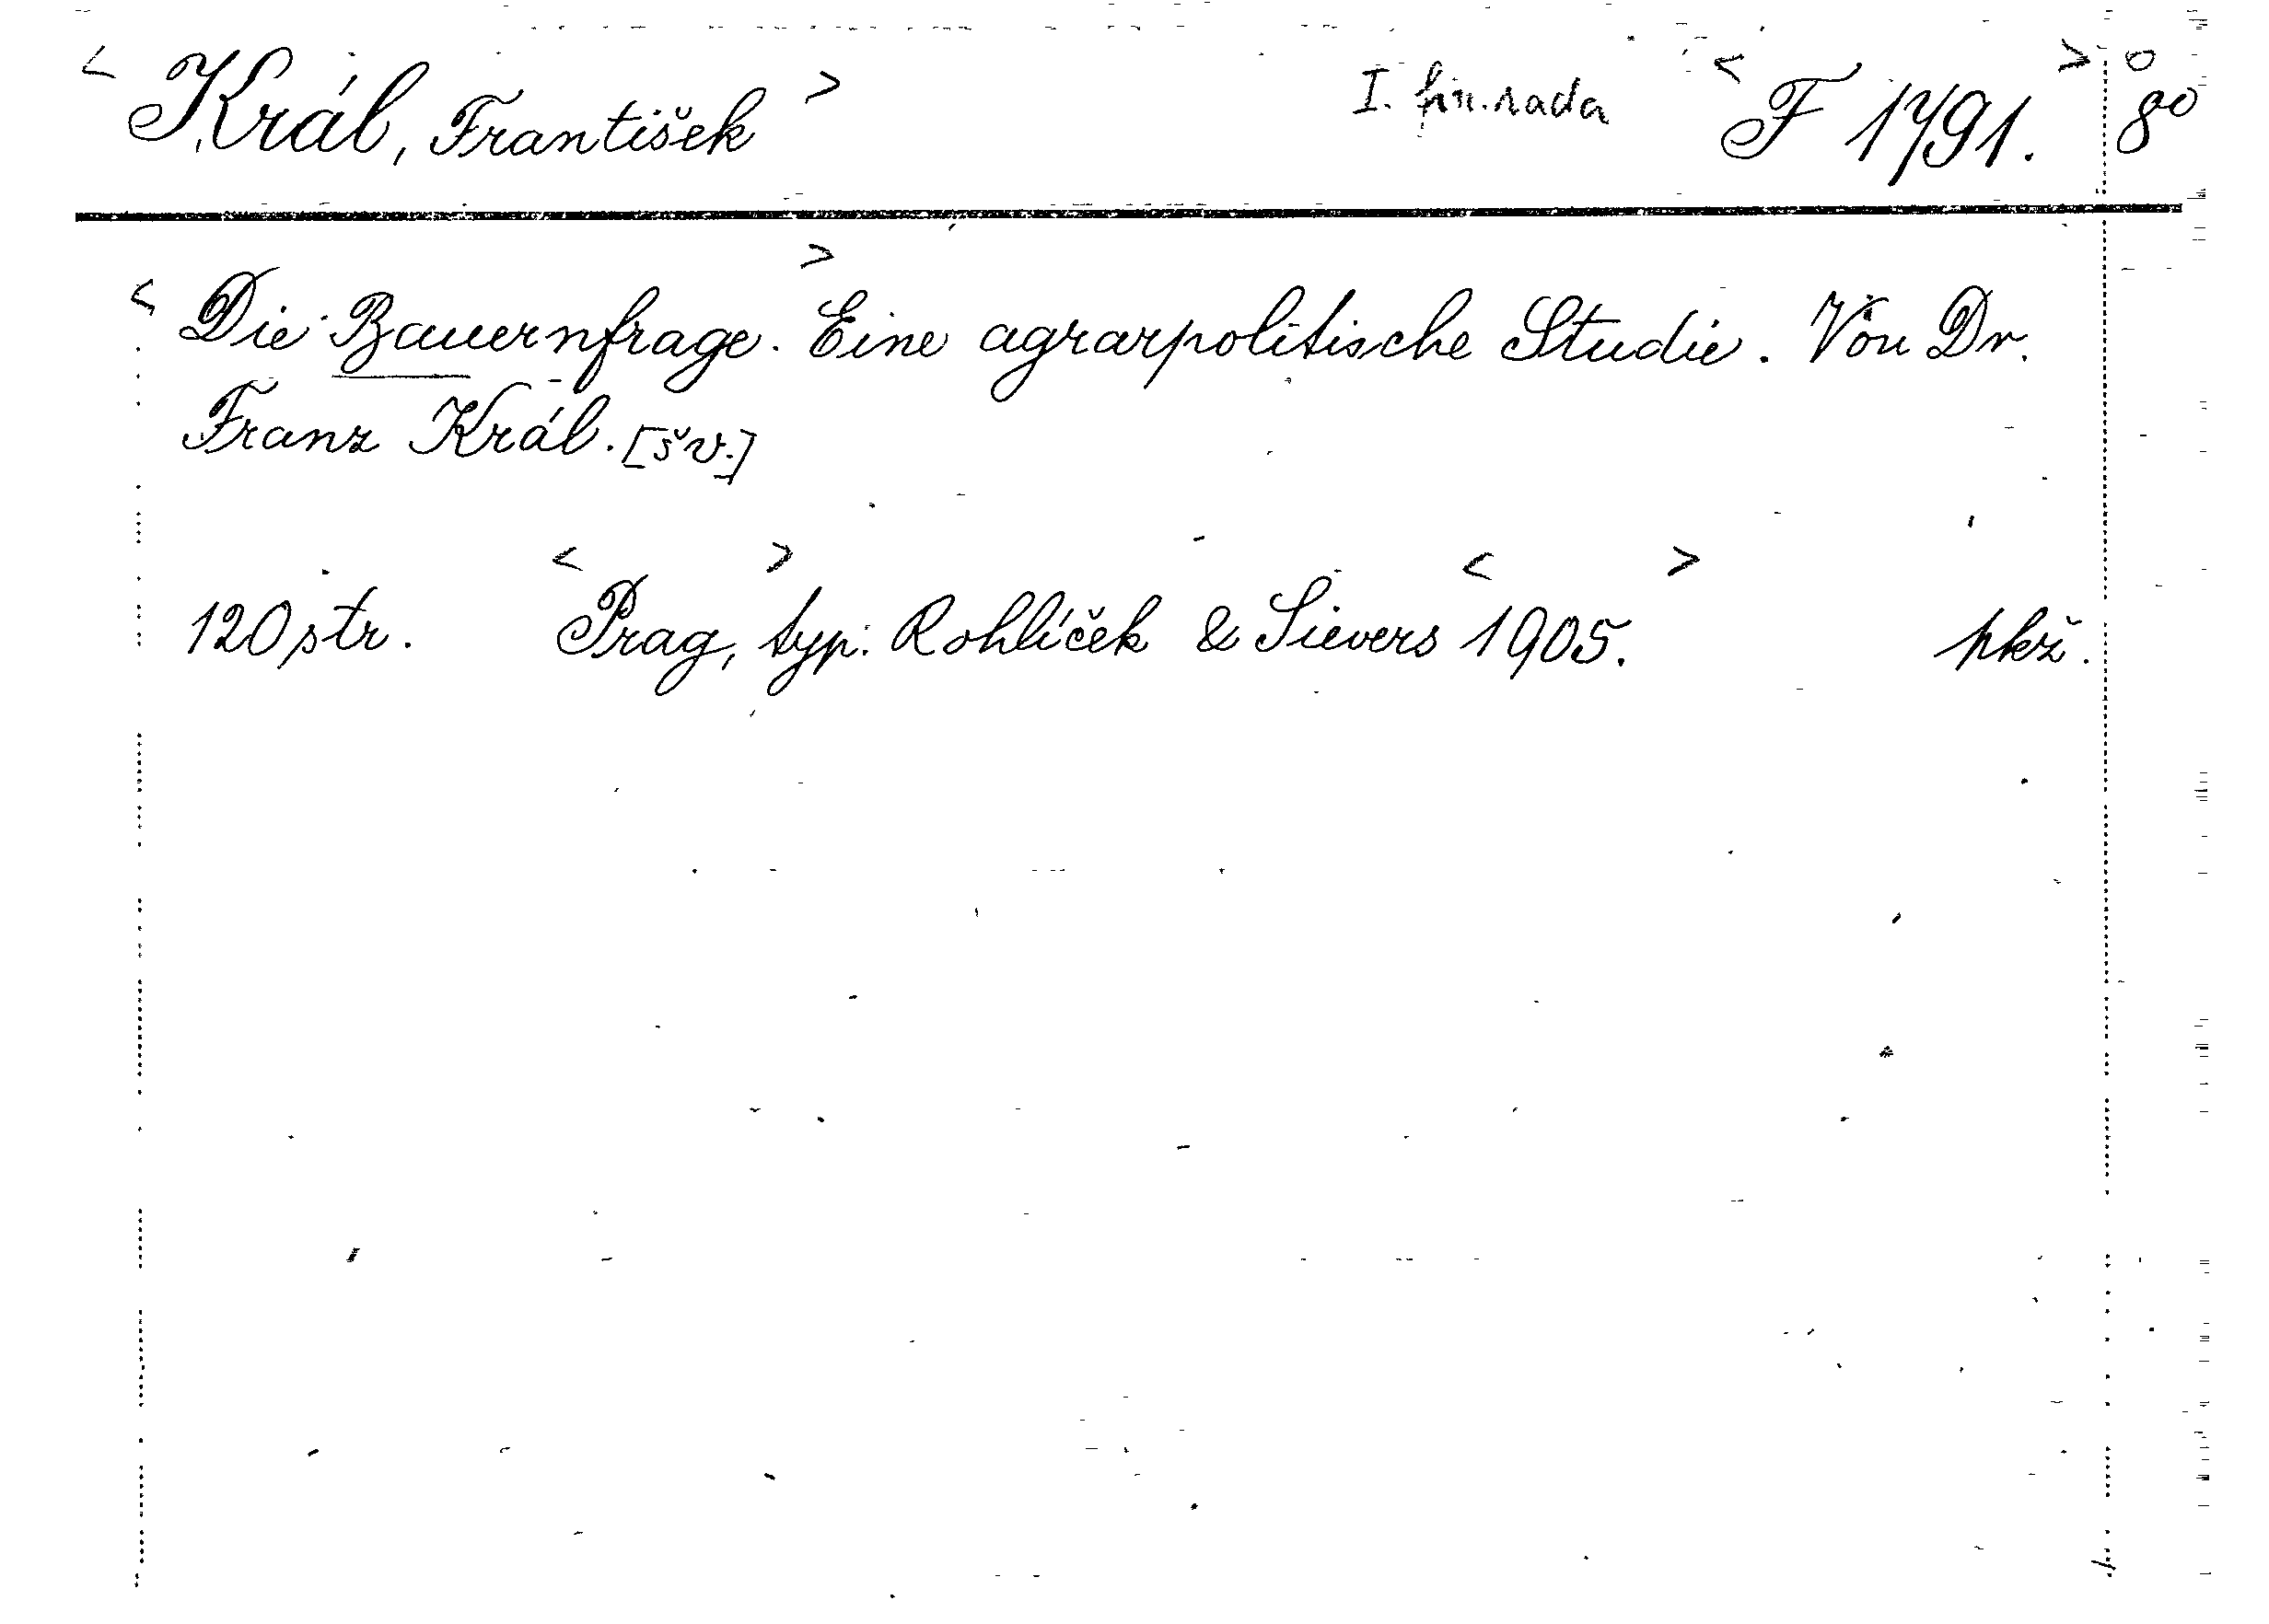 < Král, František > I. fin. rada < F 1791. > 8º
< Die Bauernfrage. > Eine agrarpolitische Studie. Von Dr.
Franz Král. [šv.]
120 str. < Prag, > typ. Rohlíček & Sievers < 1905. > pkž.